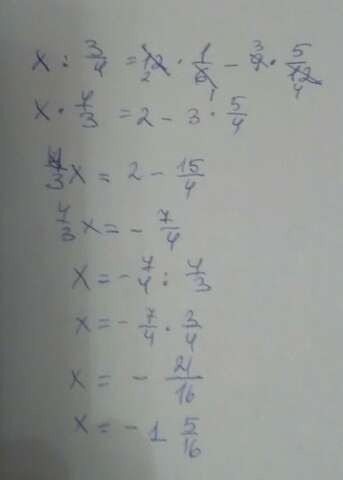 x : 3/4 = 12 · 1/6 - 9 · 5/12
x · 4/3 = 2 - 3 · 5/4
4/3 x = 2 - 15/4
4/3 x = - 7/4
x = - 7/4 : 4/3
x = - 7/4 · 3/4
x = - 21/16
x = - 1 5/16